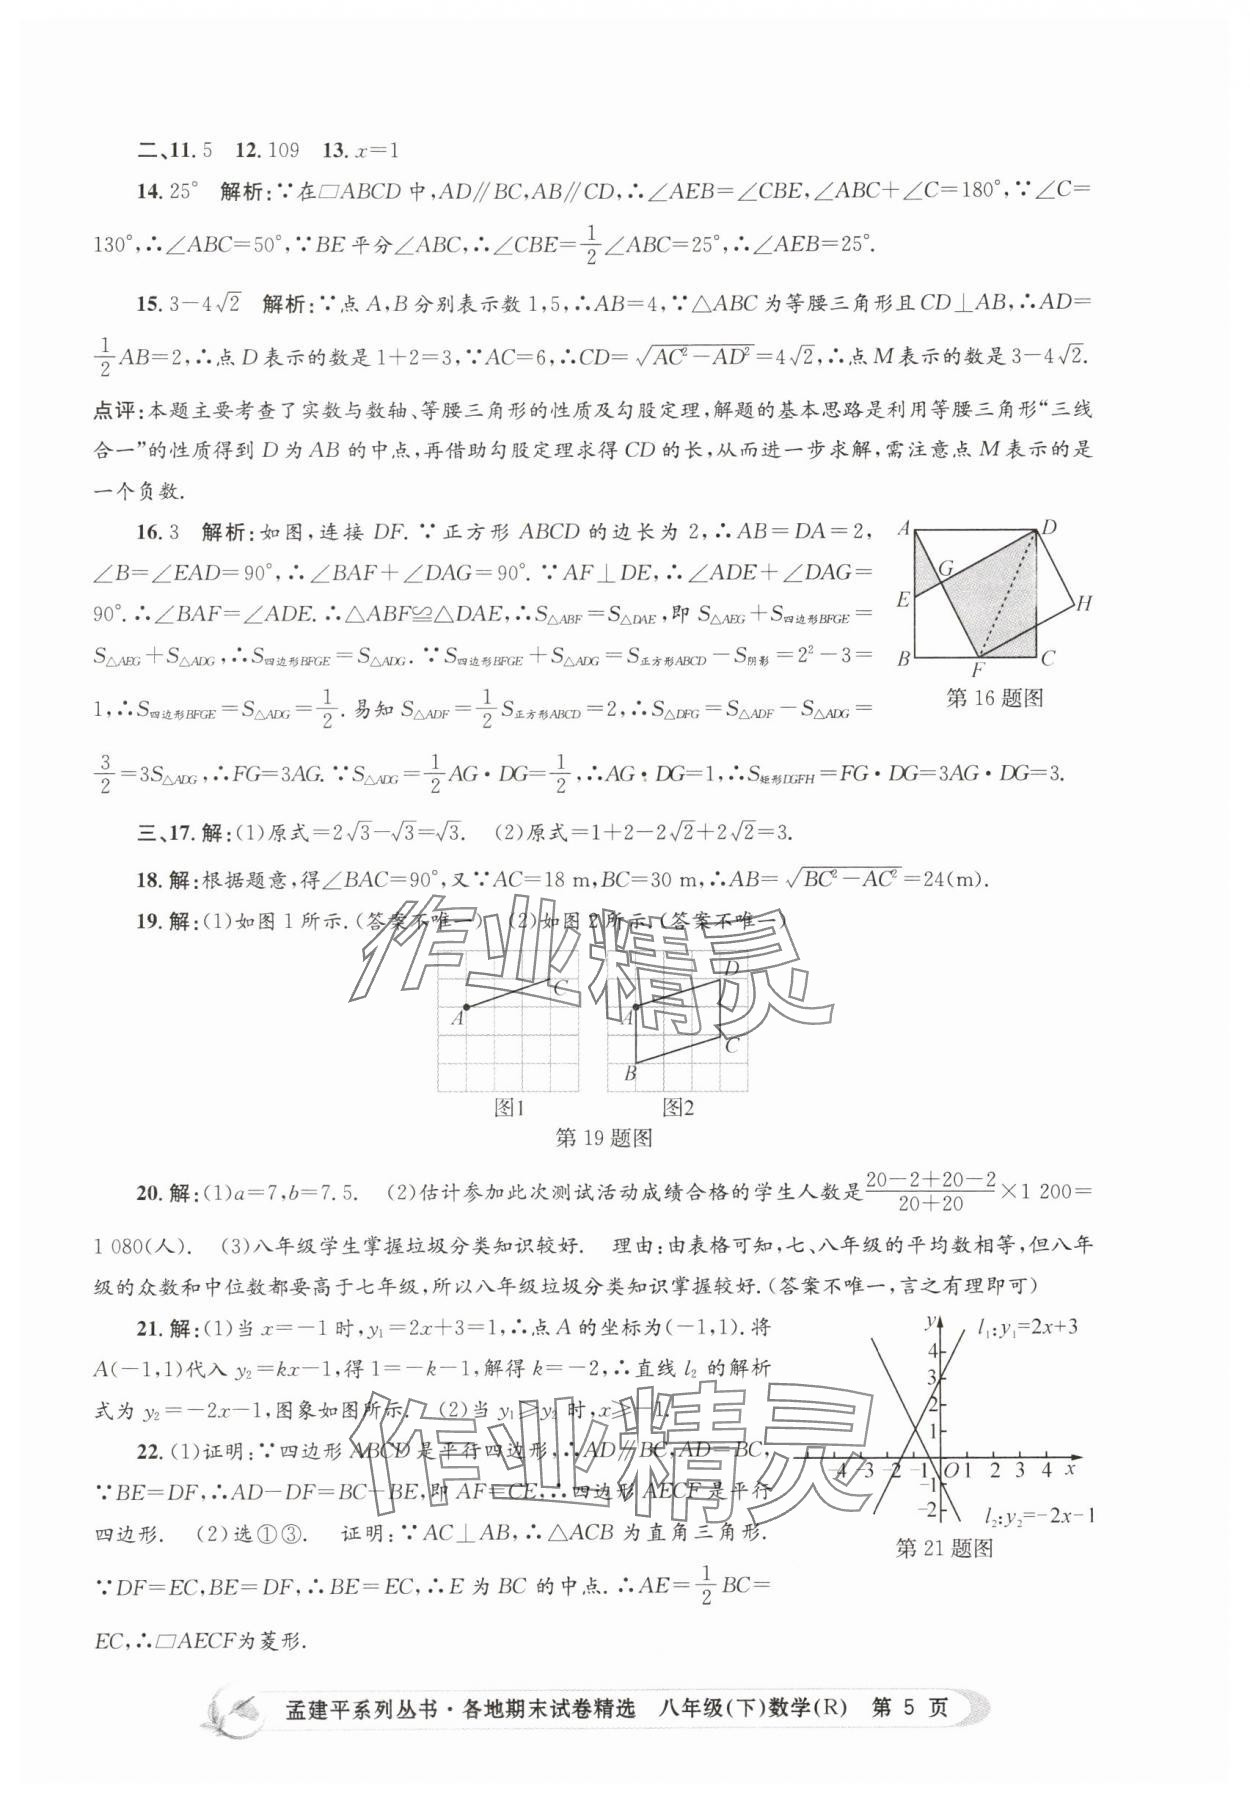 二、11. 5　12. 109　13. x=1
14. 25°　解析:∵在▱ABCD中,AD∥BC,AB∥CD,∴∠AEB=∠CBE,∠ABC+∠C=180°,∵∠C=
130°,∴∠ABC=50°,∵BE平分∠ABC,∴∠CBE=1/2∠ABC=25°,∴∠AEB=25°.
15. 3-4√2　解析:∵点A,B分别表示数1,5,∴AB=4,∵△ABC为等腰三角形且CD⊥AB,∴AD=
1/2AB=2,∴点D表示的数是1+2=3,∵AC=6,∴CD=√(AC²-AD²)=4√2,∴点M表示的数是3-4√2.
点评:本题主要考查了实数与数轴、等腰三角形的性质及勾股定理,解题的基本思路是利用等腰三角形“三线
合一”的性质得到D为AB的中点,再借助勾股定理求得CD的长,从而进一步求解,需注意点M表示的是
一个负数.
16. 3　解析:如图,连接DF.∵正方形ABCD的边长为2,∴AB=DA=2,
∠B=∠EAD=90°,∴∠BAF+∠DAG=90°.∵AF⊥DE,∴∠ADE+∠DAG=
90°.∴∠BAF=∠ADE.∴△ABF≌△DAE,∴S△ABF=S△DAE,即S△AEG+S四边形BFGE=
S△AEG+S△ADG,∴S四边形BFGE=S△ADG.∵S四边形BFGE+S△ADG=S正方形ABCD-S阴影=2²-3=
1,∴S四边形BFGE=S△ADG=1/2.易知S△ADF=1/2S正方形ABCD=2,∴S△DFG=S△ADF-S△ADG=
3/2=3S△ADG,∴FG=3AG.∵S△ADG=1/2AG·DG=1/2,∴AG·DG=1,∴S矩形DGFH=FG·DG=3AG·DG=3.
A D G E H B F C
第16题图
三、17.解:(1)原式=2√3-√3=√3.　(2)原式=1+2-2√2+2√2=3.
18.解:根据题意,得∠BAC=90°,又∵AC=18 m,BC=30 m,∴AB=√(BC²-AC²)=24(m).
19.解:(1)如图1所示.(答案不唯一)　(2)如图2所示.(答案不唯一)
A C　A D C B
图1　图2
第19题图
20.解:(1)a=7,b=7.5.　(2)估计参加此次测试活动成绩合格的学生人数是(20-2+20-2)/(20+20)×1 200=
1 080(人).　(3)八年级学生掌握垃圾分类知识较好.　理由:由表格可知,七、八年级的平均数相等,但八年
级的众数和中位数都要高于七年级,所以八年级垃圾分类知识掌握较好.(答案不唯一,言之有理即可)
21.解:(1)当x=-1时,y₁=2x+3=1,∴点A的坐标为(-1,1).将
A(-1,1)代入y₂=kx-1,得1=-k-1,解得k=-2,∴直线l₂的解析
式为y₂=-2x-1,图象如图所示.　(2)当y₁≥y₂时,x≥-1.
22.(1)证明:∵四边形ABCD是平行四边形,∴AD∥BC,AD=BC,
∵BE=DF,∴AD-DF=BC-BE,即AF=CE,∴四边形AECF是平行
四边形.　(2)选①③.　证明:∵AC⊥AB,∴△ACB为直角三角形.
∵DF=EC,BE=DF,∴BE=EC,∴E为BC的中点.∴AE=1/2BC=
EC,∴▱AECF为菱形.
y l₁:y₁=2x+3
4
3
2
1
-4 -3 -2 -1 O 1 2 3 4 x
-1
-2
l₂:y₂=-2x-1
第21题图
作业精灵
作业精灵
孟建平系列丛书·各地期末试卷精选　八年级(下)数学(R)　第 5 页